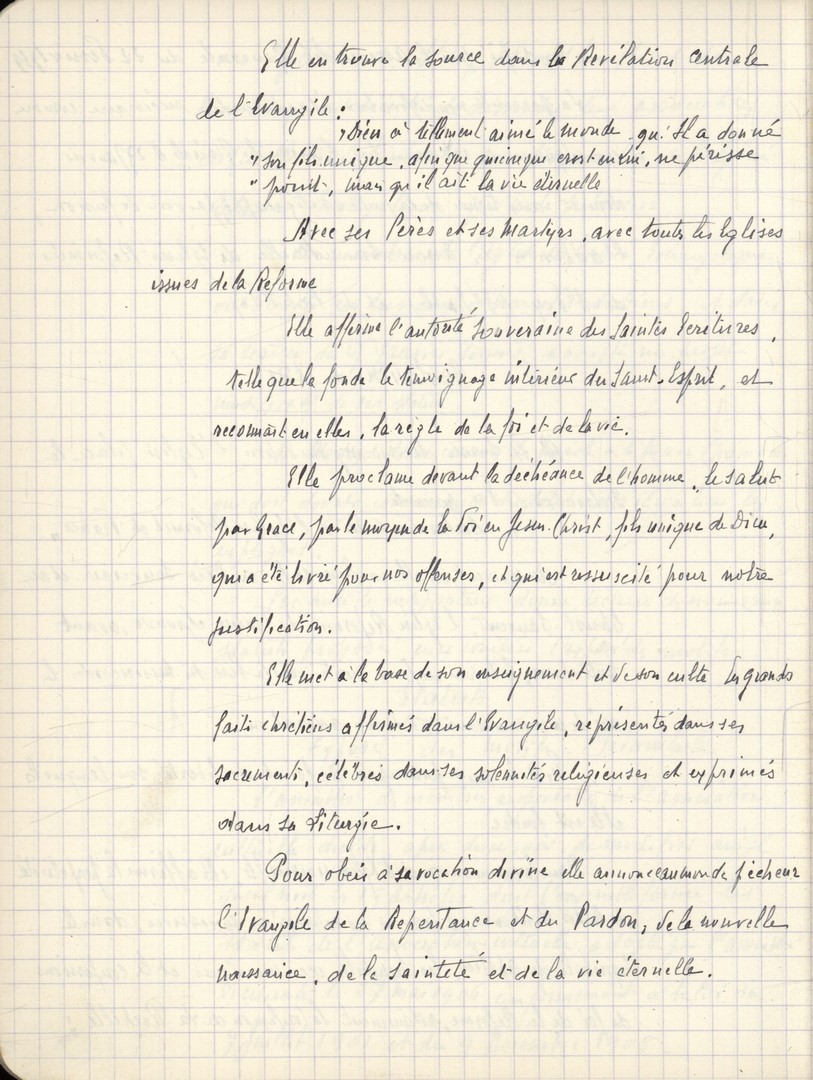 Elle en trouve la source dans la Révélation centrale
de l'Evangile :
"Dieu a tellement aimé le monde qu'Il a donné
"son fils unique, afin que quiconque croit en Lui, ne périsse
"point, mais qu'il ait la vie éternelle
Avec ses Pères et ses Martyrs, avec toutes les Eglises
issues de la Réforme
Elle affirme l'autorité Souveraine des Saintes Ecritures,
telle que la fonde le témoignage intérieur du Saint-Esprit, et
reconnaît en elles, la règle de la foi et de la vie.
Elle proclame devant la déchéance de l'homme, le salut
par Grace, par le moyen de la Foi en Jesus-Christ, fils unique de Dieu,
qui a été livré pour nos offenses, et qui est ressuscité pour notre
justification.
Elle met à la base de son enseignement et de son culte les grands
faits chrétiens affirmés dans l'Evangile, représentés dans ses
sacrements, célébrés dans ses solennités religieuses et exprimés
dans sa Liturgie.
Pour obéir à sa vocation divine elle annonce au monde pécheur
l'Evangile de la Repentance et du Pardon, de la nouvelle
naissance, de la Sainteté et de la vie éternelle.